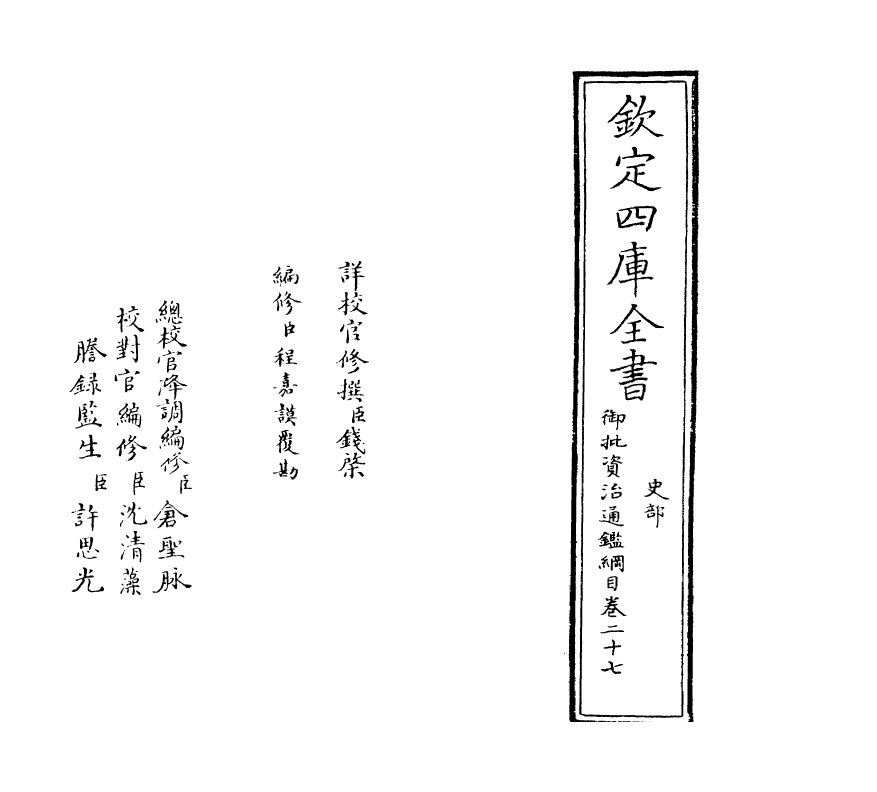 欽定四庫全書
史部
御批資治通鑑綱目卷二十七
詳校官修撰臣錢棨
編修臣程嘉謨覆勘
總校官降調編修臣倉聖脉
校對官編修臣沈清藻
謄録監生臣許思光